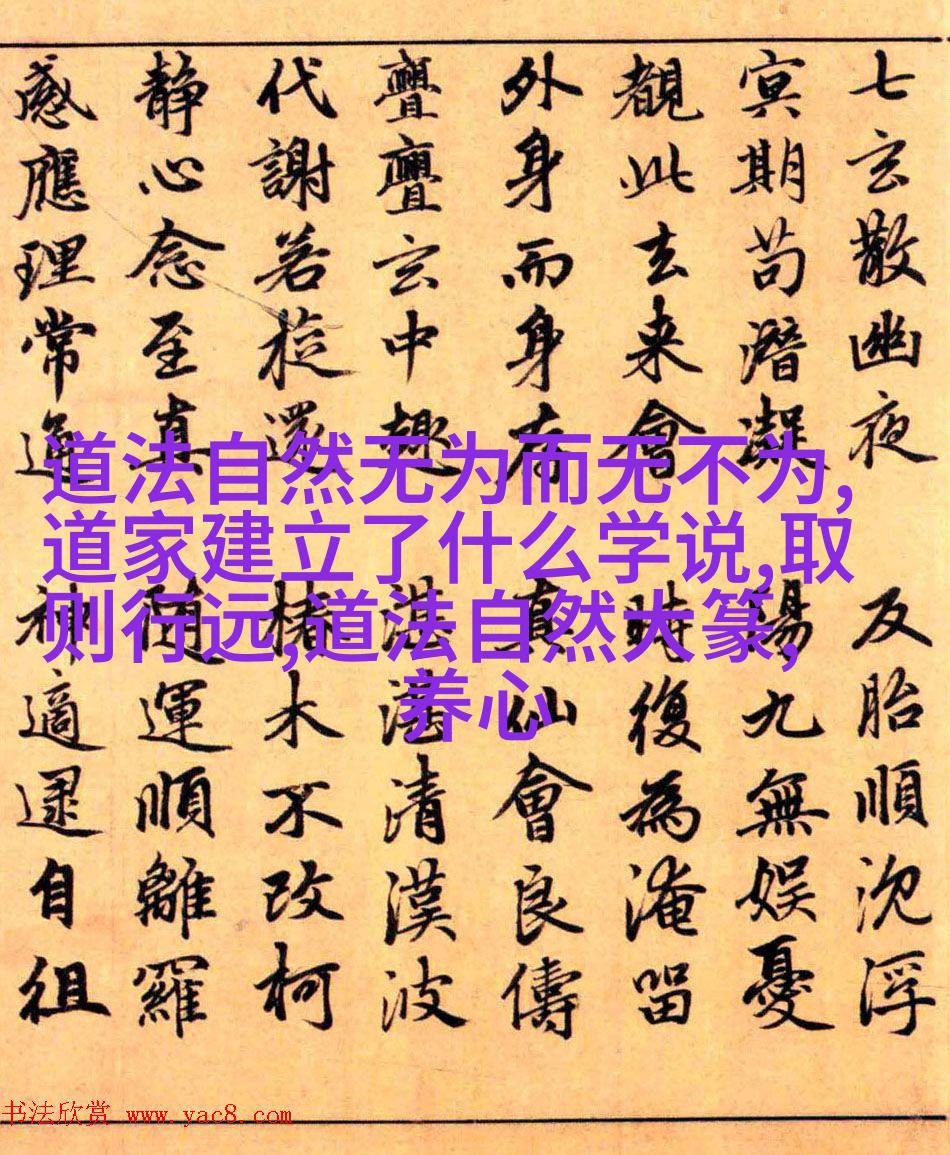 七玄散幽夜 反胎順沈浮
冥期苟潛凝 陽九無娛憂
覩此去来會 時復為淹留
外身而身存 真仙會良儔
亹亹玄中趣 湛湛清漢波
代謝若旋還 椿木不改柯
静心念至真 隨運順離羅
感應理常通 神適逯自徂
道法自然无为而无不为,
道家建立了什么学说,取
则行远,道法自然大篆,
养心
书法欣赏 www.yac8.com